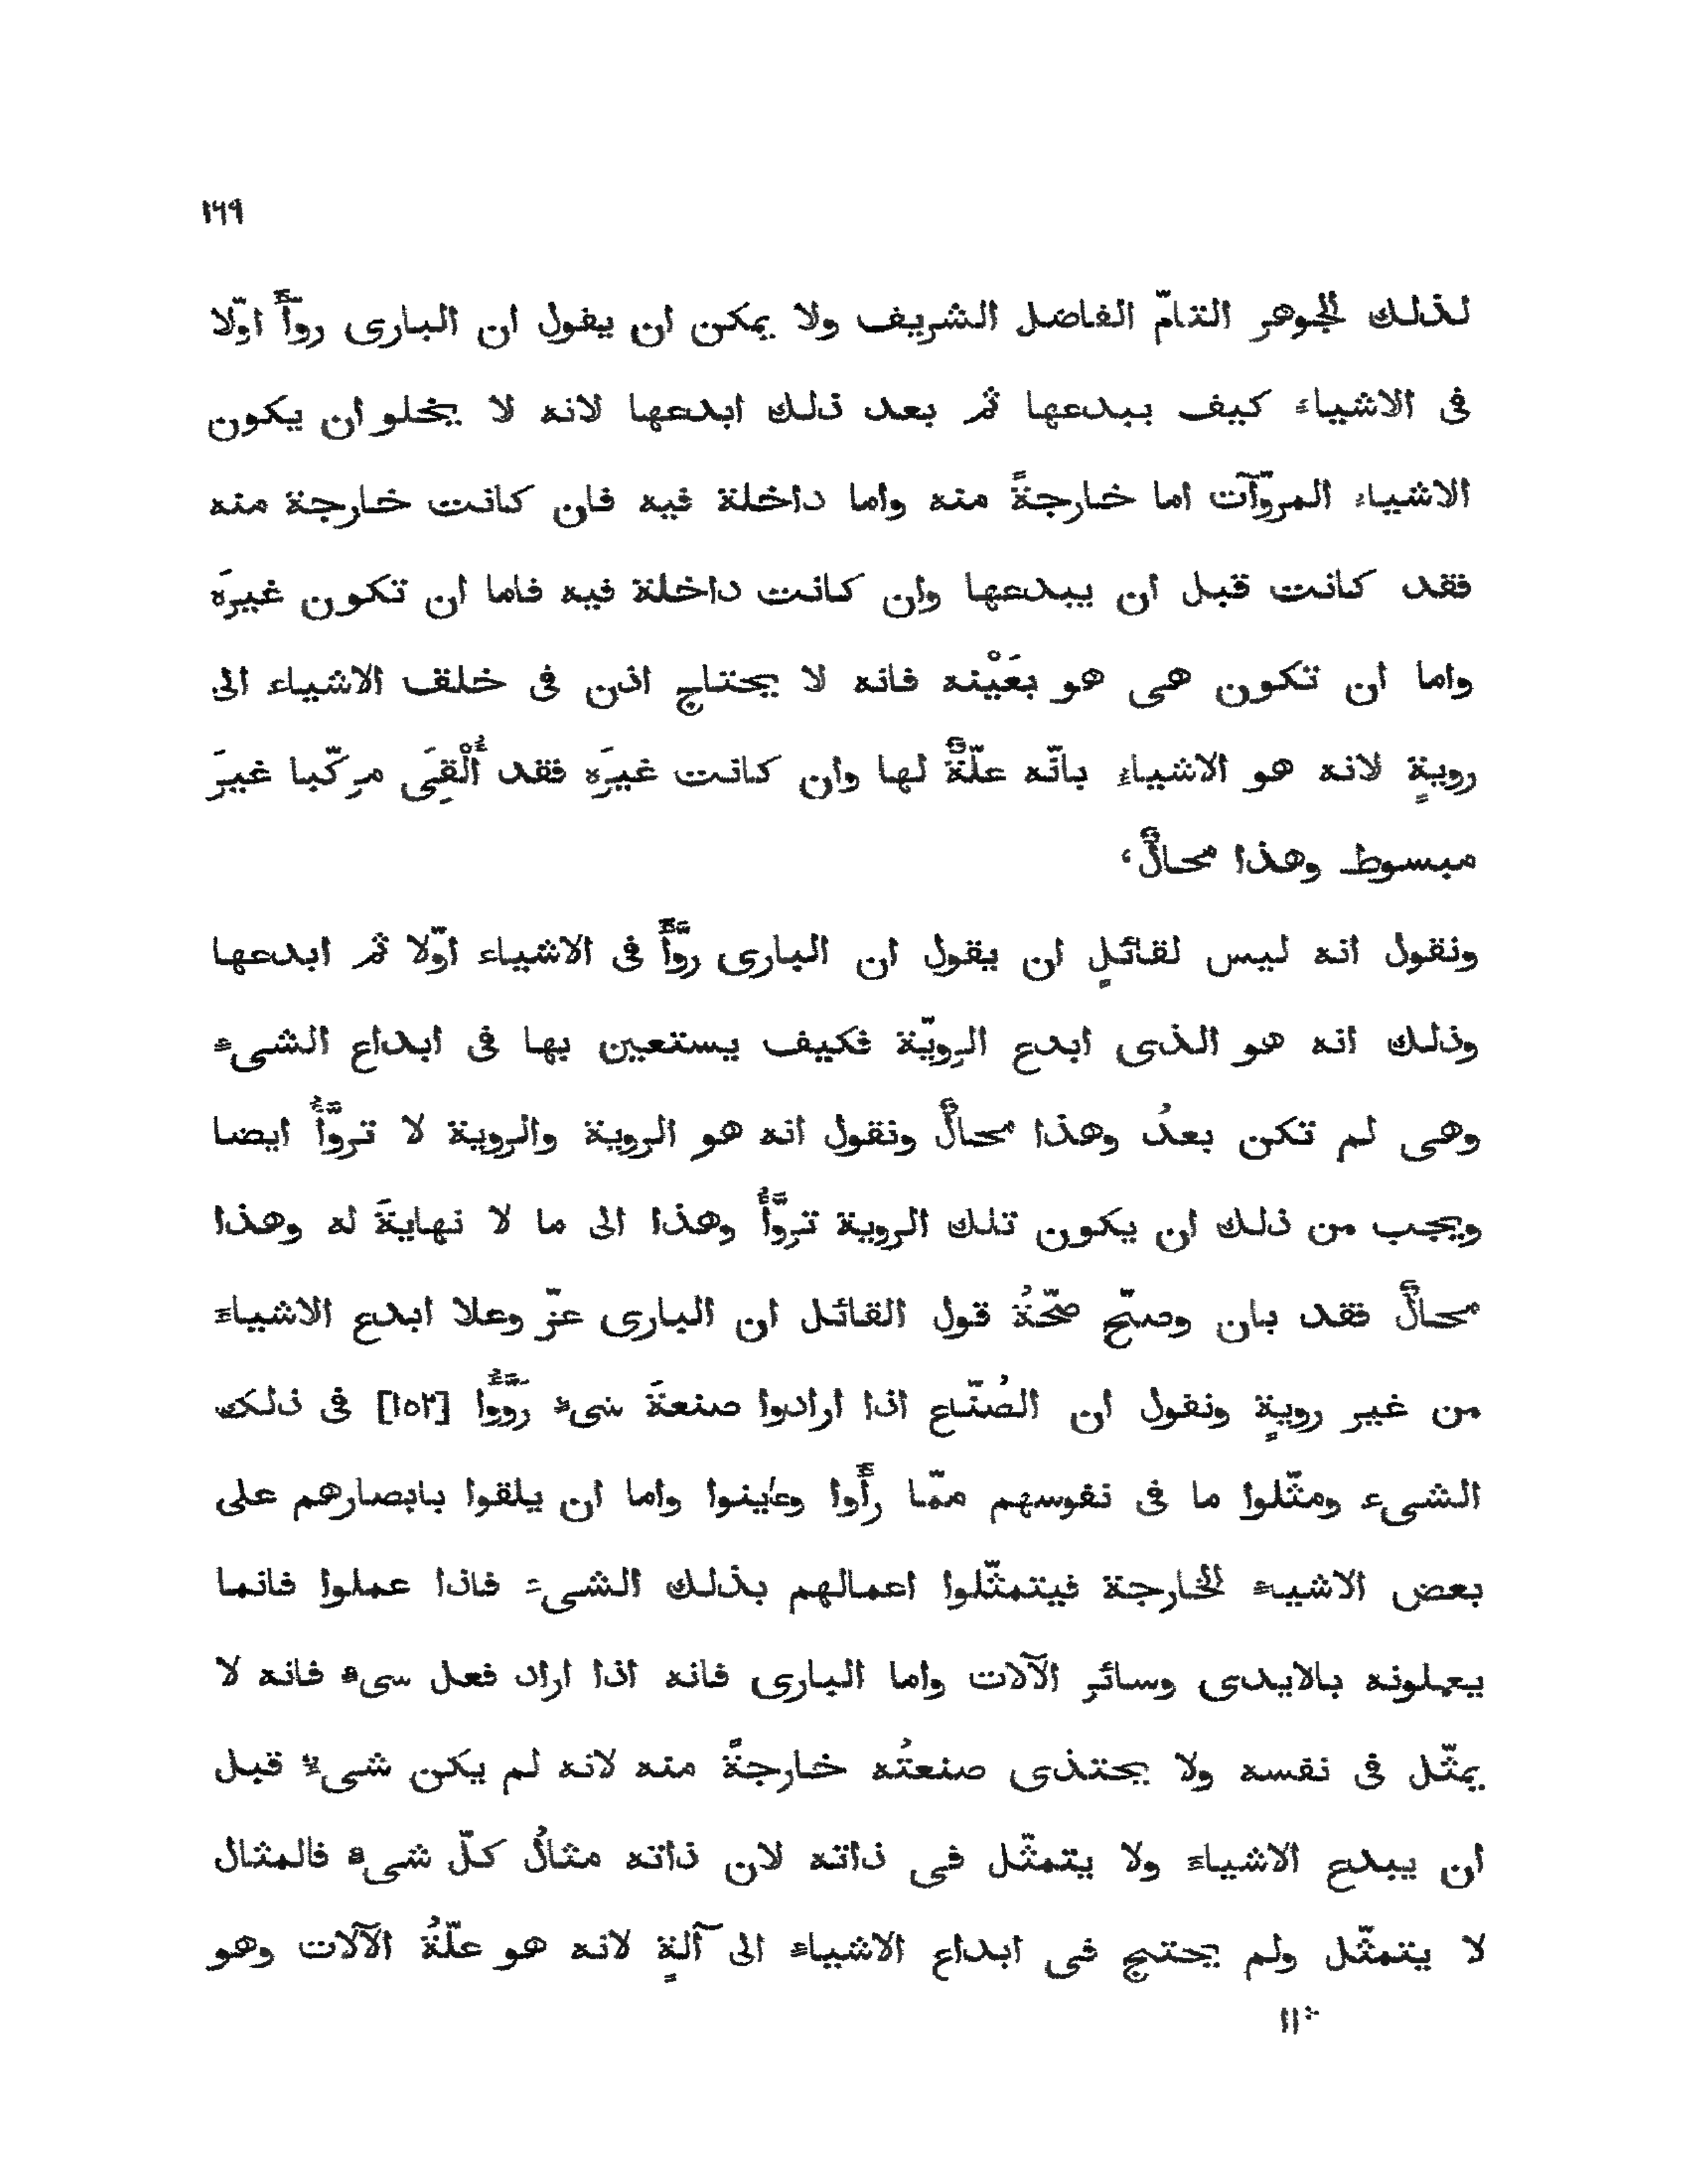 ١٦٩
لذلك الجوهر التامّ الفاضل الشريف ولا يمكن ان يقول ان البارى روّأَ اوّلا
فى الاشياء كيف يبدعها ثم بعد ذلك ابدعها لانه لا يخلو ان يكون
الاشياء المروّآت اما خارجةً منه واما داخلة فيه فان كانت خارجة منه
فقد كانت قبل ان يبدعها وان كانت داخلة فيه فاما ان تكون غيرَه
واما ان تكون هى هو بعَيْنه فانه لا يحتاج اذن فى خلق الاشياء الى
رويةٍ لانه هو الاشياء بانّه علّةٌ لها وان كانت غيرَه فقد أُلْقِىَ مركّبا غيرَ
مبسوط وهذا محالٌ،
ونقول انه ليس لقائلٍ ان يقول ان البارى روّأَ فى الاشياء اوّلا ثم ابدعها
وذلك انه هو الذى ابدع الرِويّة فكيف يستعين بها فى ابداع الشىء
وهى لم تكن بعدُ وهذا محالٌ ونقول انه هو الروية والروية لا تروَّأُ ايضا
ويجب من ذلك ان يكون تلك الروية تروَّأُ وهذا الى ما لا نهايةَ له وهذا
محالٌ فقد بان وصحّ صحّةُ قول القائل ان البارى عزّ وعلا ابدع الاشياءَ
من غير رويةٍ ونقول ان الصُنّاع اذا ارادوا صنعةَ شىء رَوَّؤُا [١٥٣] فى ذلك
الشىء ومثّلوا ما فى نفوسهم ممّا رأَوا وعاينوا واما ان يلقوا بابصارهم على
بعض الاشياء الخارجة فيتمثّلوا اعمالهم بذلك الشىء فاذا عملوا فانما
يعملونه بالايدى وسائر الآلات واما البارى فانه اذا اراد فعل سىء فانه لا
يمثّل فى نفسه ولا يحتذى صنعتُه خارجةً منه لانه لم يكن شىءٌ قبل
ان يبدع الاشياءَ ولا يتمثّل فى ذاته لان ذاته مثالُ كلّ شىء فالمثال
لا يتمثّل ولم يحتج فى ابداع الاشياء الى آلةٍ لانه هو علّةُ الآلات وهو